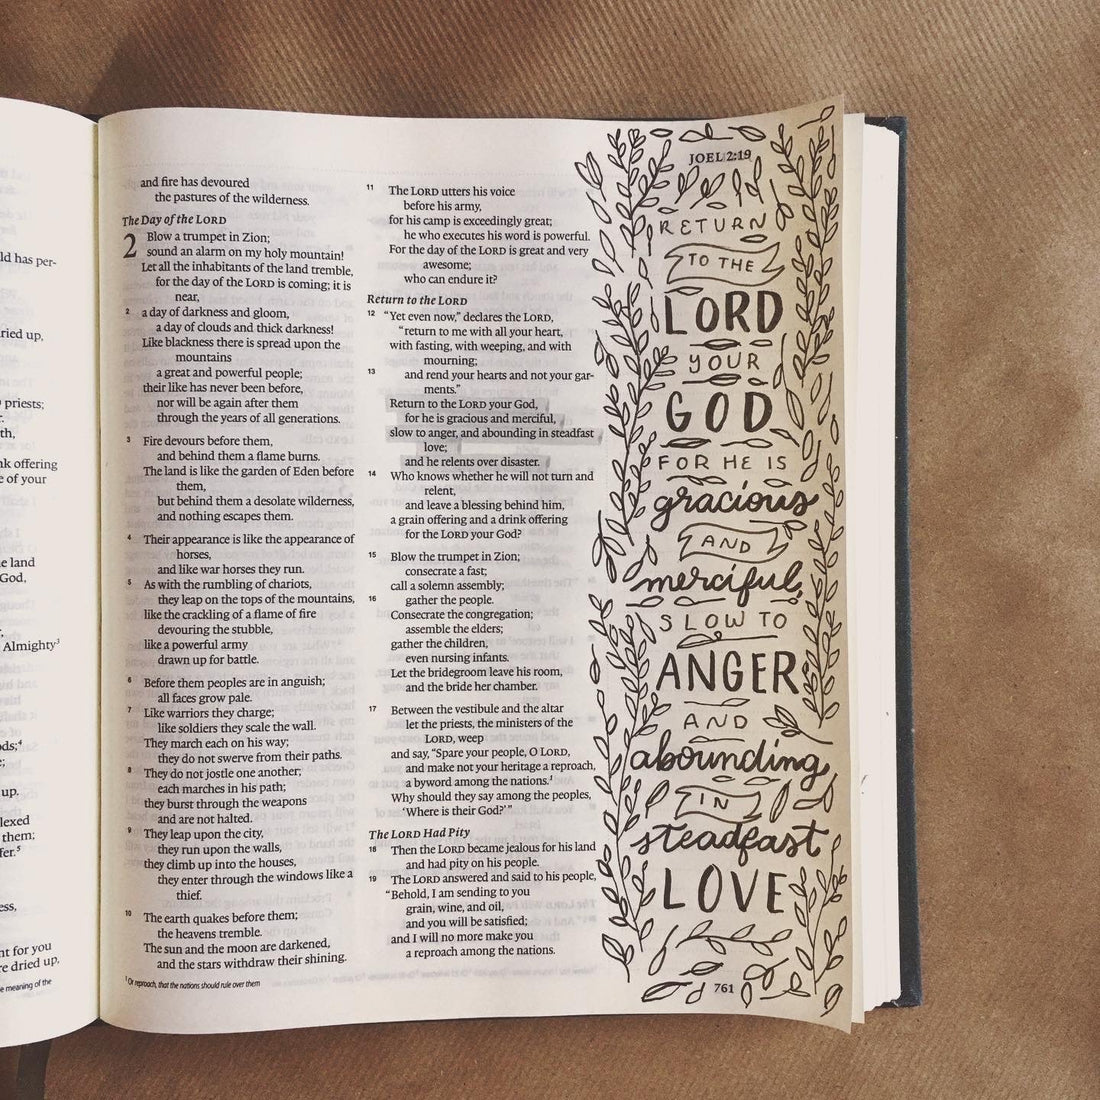 ld has per-
ried up,
priests;
th,
nk offering
e of your
e land
God,
Almighty³
ods;⁴
up.
lexed
them;
fer.⁵
ess,
nt for you
re dried up,
e meaning of the
and fire has devoured
the pastures of the wilderness.
The Day of the LORD
2 Blow a trumpet in Zion;
sound an alarm on my holy mountain!
Let all the inhabitants of the land tremble,
for the day of the LORD is coming; it is
near,
2 a day of darkness and gloom,
a day of clouds and thick darkness!
Like blackness there is spread upon the
mountains
a great and powerful people;
their like has never been before,
nor will be again after them
through the years of all generations.
3 Fire devours before them,
and behind them a flame burns.
The land is like the garden of Eden before
them,
but behind them a desolate wilderness,
and nothing escapes them.
4 Their appearance is like the appearance of
horses,
and like war horses they run.
5 As with the rumbling of chariots,
they leap on the tops of the mountains,
like the crackling of a flame of fire
devouring the stubble,
like a powerful army
drawn up for battle.
6 Before them peoples are in anguish;
all faces grow pale.
7 Like warriors they charge;
like soldiers they scale the wall.
They march each on his way;
they do not swerve from their paths.
8 They do not jostle one another;
each marches in his path;
they burst through the weapons
and are not halted.
9 They leap upon the city,
they run upon the walls,
they climb up into the houses,
they enter through the windows like a
thief.
10 The earth quakes before them;
the heavens tremble.
The sun and the moon are darkened,
and the stars withdraw their shining.
¹ Or reproach, that the nations should rule over them
11 The LORD utters his voice
before his army,
for his camp is exceedingly great;
he who executes his word is powerful.
For the day of the LORD is great and very
awesome;
who can endure it?
Return to the LORD
12 “Yet even now,” declares the LORD,
“return to me with all your heart,
with fasting, with weeping, and with
mourning;
13 and rend your hearts and not your gar-
ments.”
Return to the LORD your God,
for he is gracious and merciful,
slow to anger, and abounding in steadfast
love;
and he relents over disaster.
14 Who knows whether he will not turn and
relent,
and leave a blessing behind him,
a grain offering and a drink offering
for the LORD your God?
15 Blow the trumpet in Zion;
consecrate a fast;
call a solemn assembly;
16 gather the people.
Consecrate the congregation;
assemble the elders;
gather the children,
even nursing infants.
Let the bridegroom leave his room,
and the bride her chamber.
17 Between the vestibule and the altar
let the priests, the ministers of the
LORD, weep
and say, “Spare your people, O LORD,
and make not your heritage a reproach,
a byword among the nations.¹
Why should they say among the peoples,
‘Where is their God?’”
The LORD Had Pity
18 Then the LORD became jealous for his land
and had pity on his people.
19 The LORD answered and said to his people,
“Behold, I am sending to you
grain, wine, and oil,
and you will be satisfied;
and I will no more make you
a reproach among the nations.
JOEL 2:19
RETURN
TO THE
LORD
YOUR
GOD
FOR HE IS
gracious
AND
merciful,
SLOW TO
ANGER
AND
abounding
IN
steadfast
LOVE
761